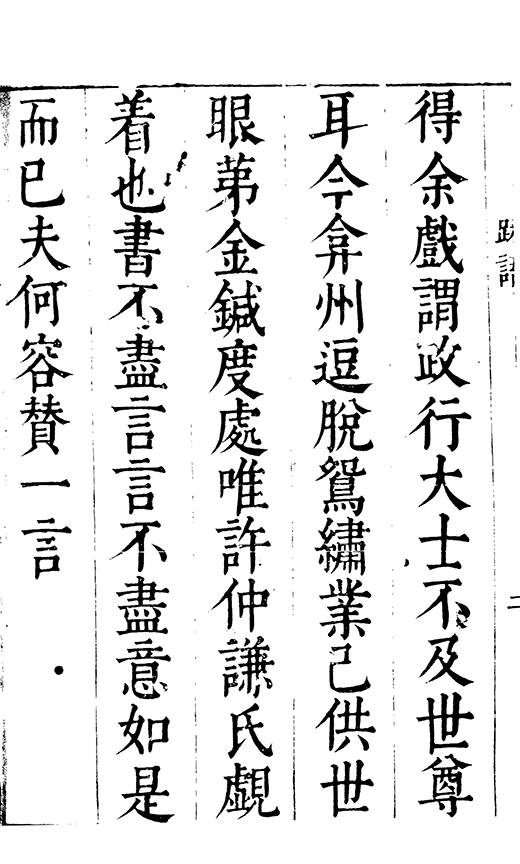 得余戲謂政行大士不及世尊
耳今弇州逗脫鴛繡業已供世
眼苐金鍼度處唯許仲謙氏覷
着也書不盡言言不盡意如是
而已夫何容賛一言